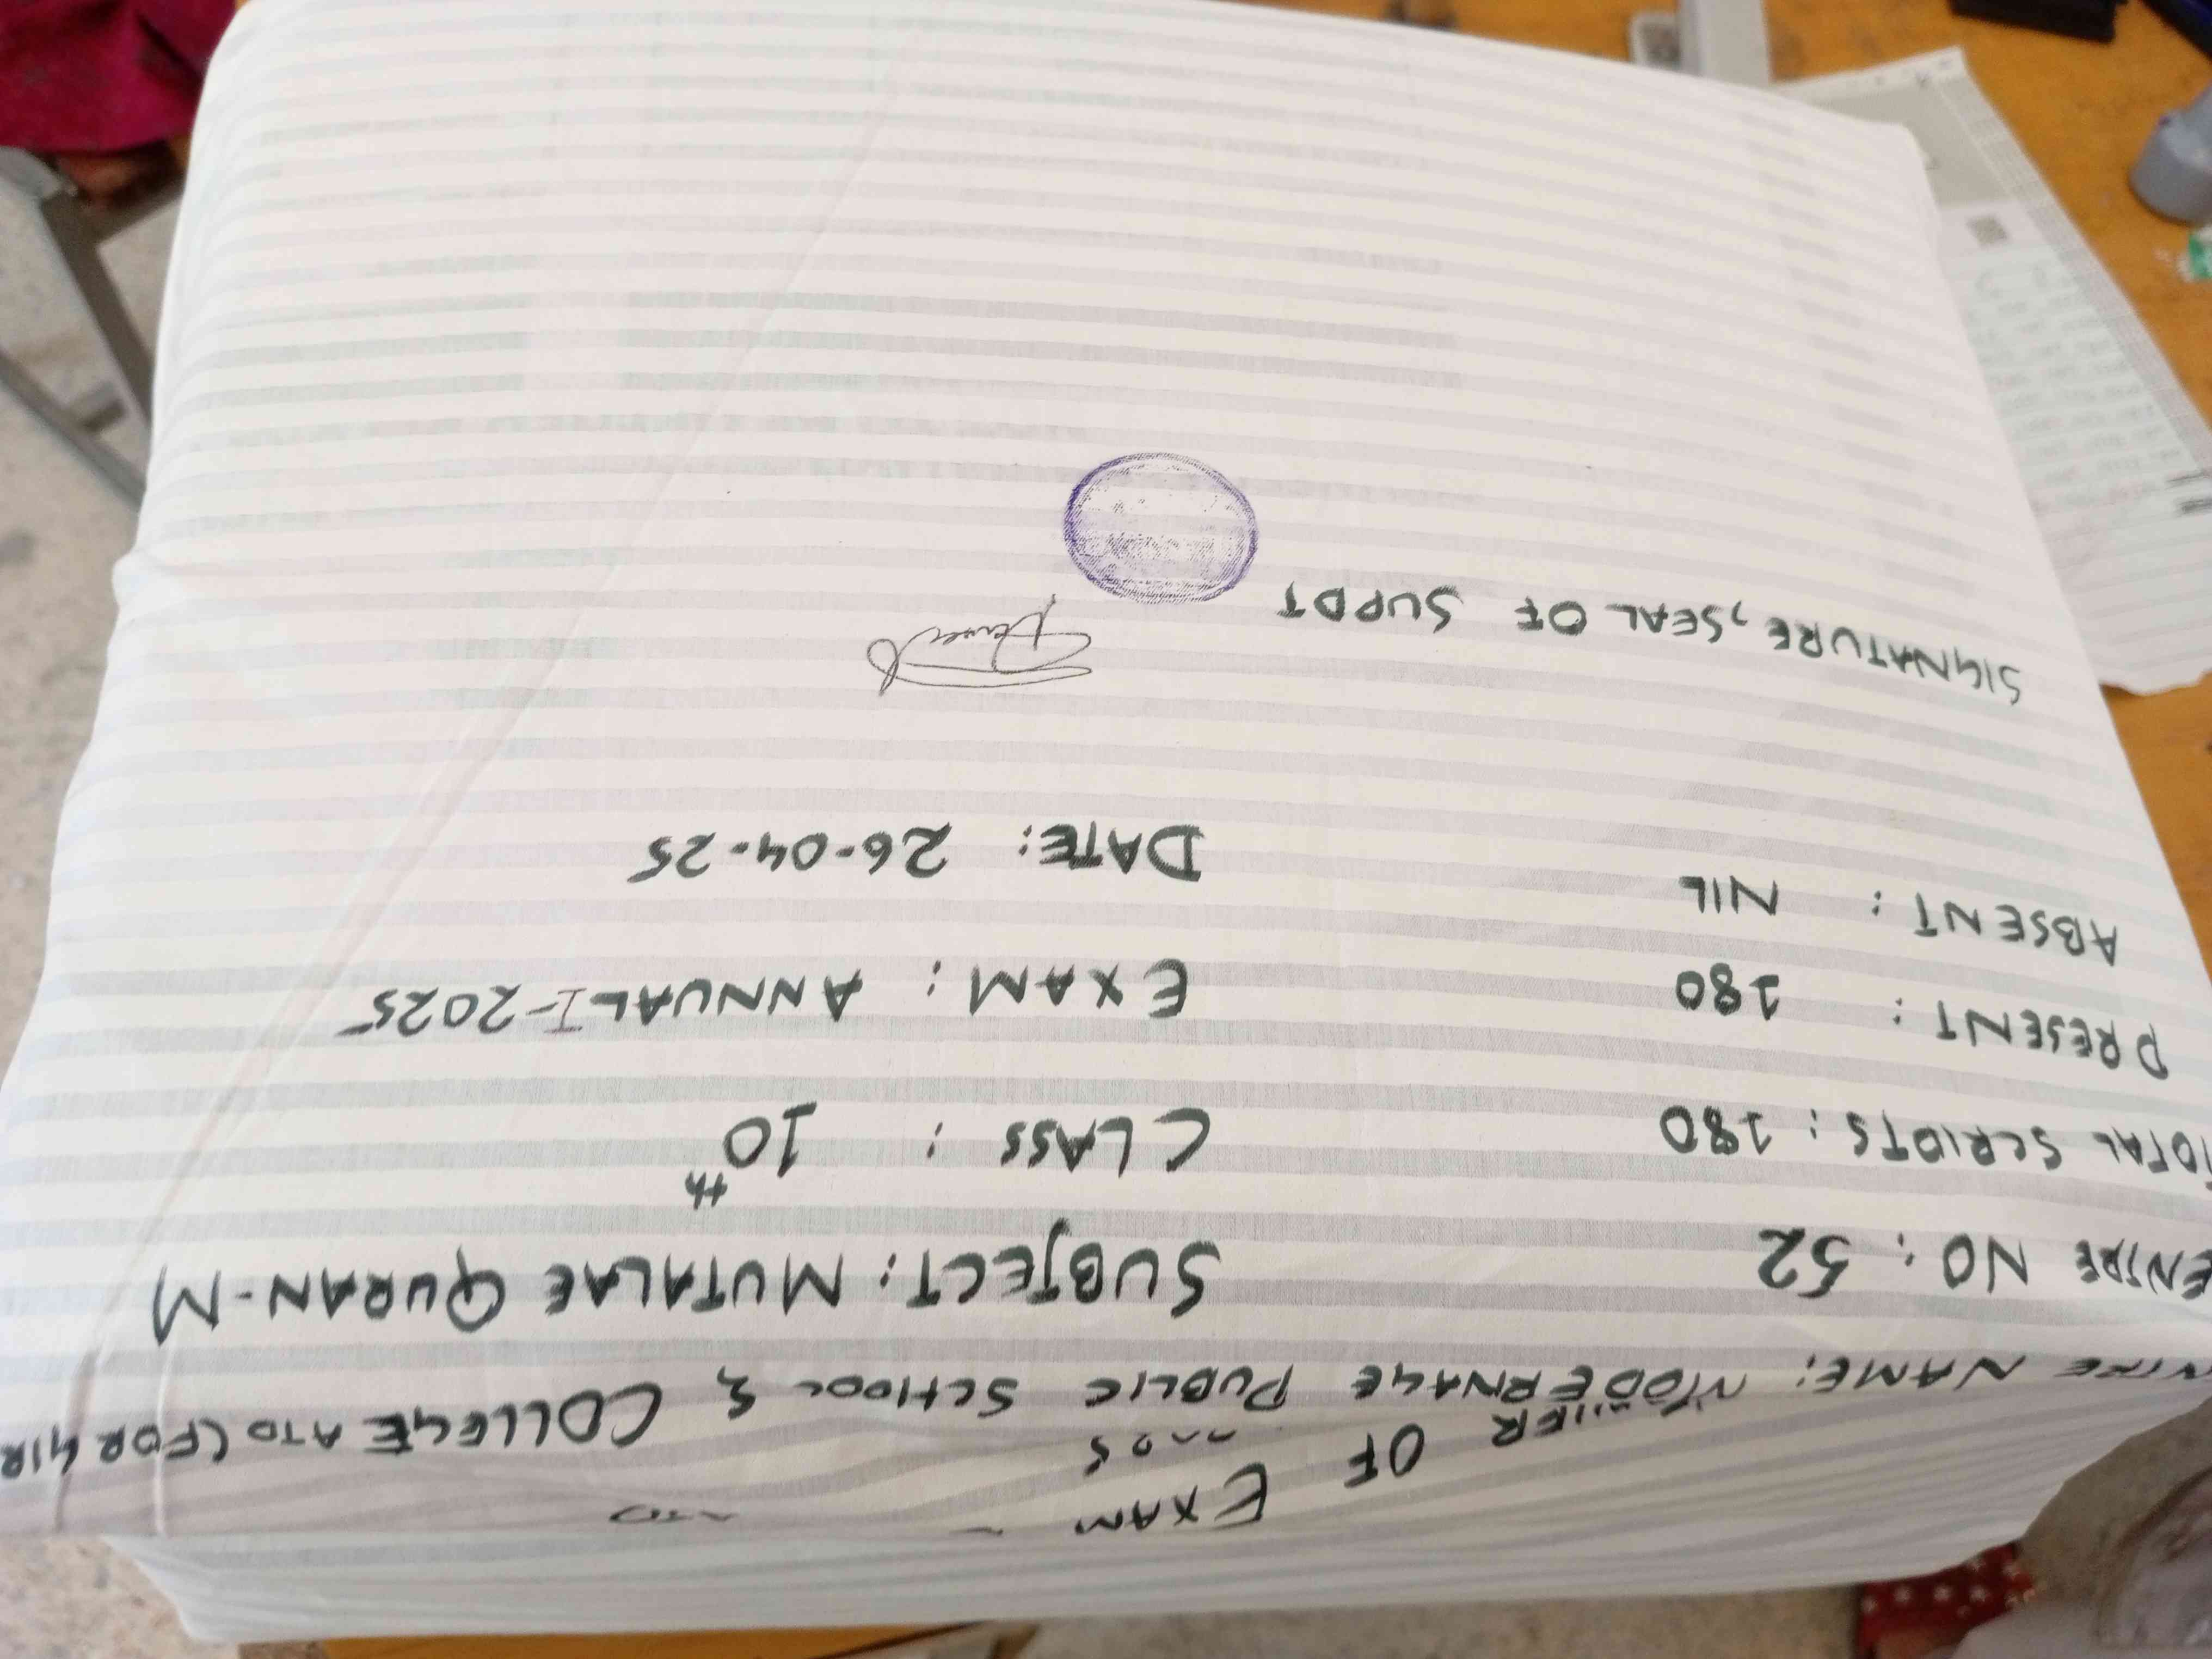 OF EXAM
NAME: MODERNAGE PUBLIC SCHOOL & COLLEGE ATD (FOR GIR
ENTRE NO: 52 SUBJECT: MUTALAE QURAN-M
TOTAL SCRIPTS: 180 CLASS: 10th
PRESENT: 180 EXAM: ANNUAL I-2025
ABSENT: NIL DATE: 26-04-25
SIGNATURE, SEAL OF SUPDT